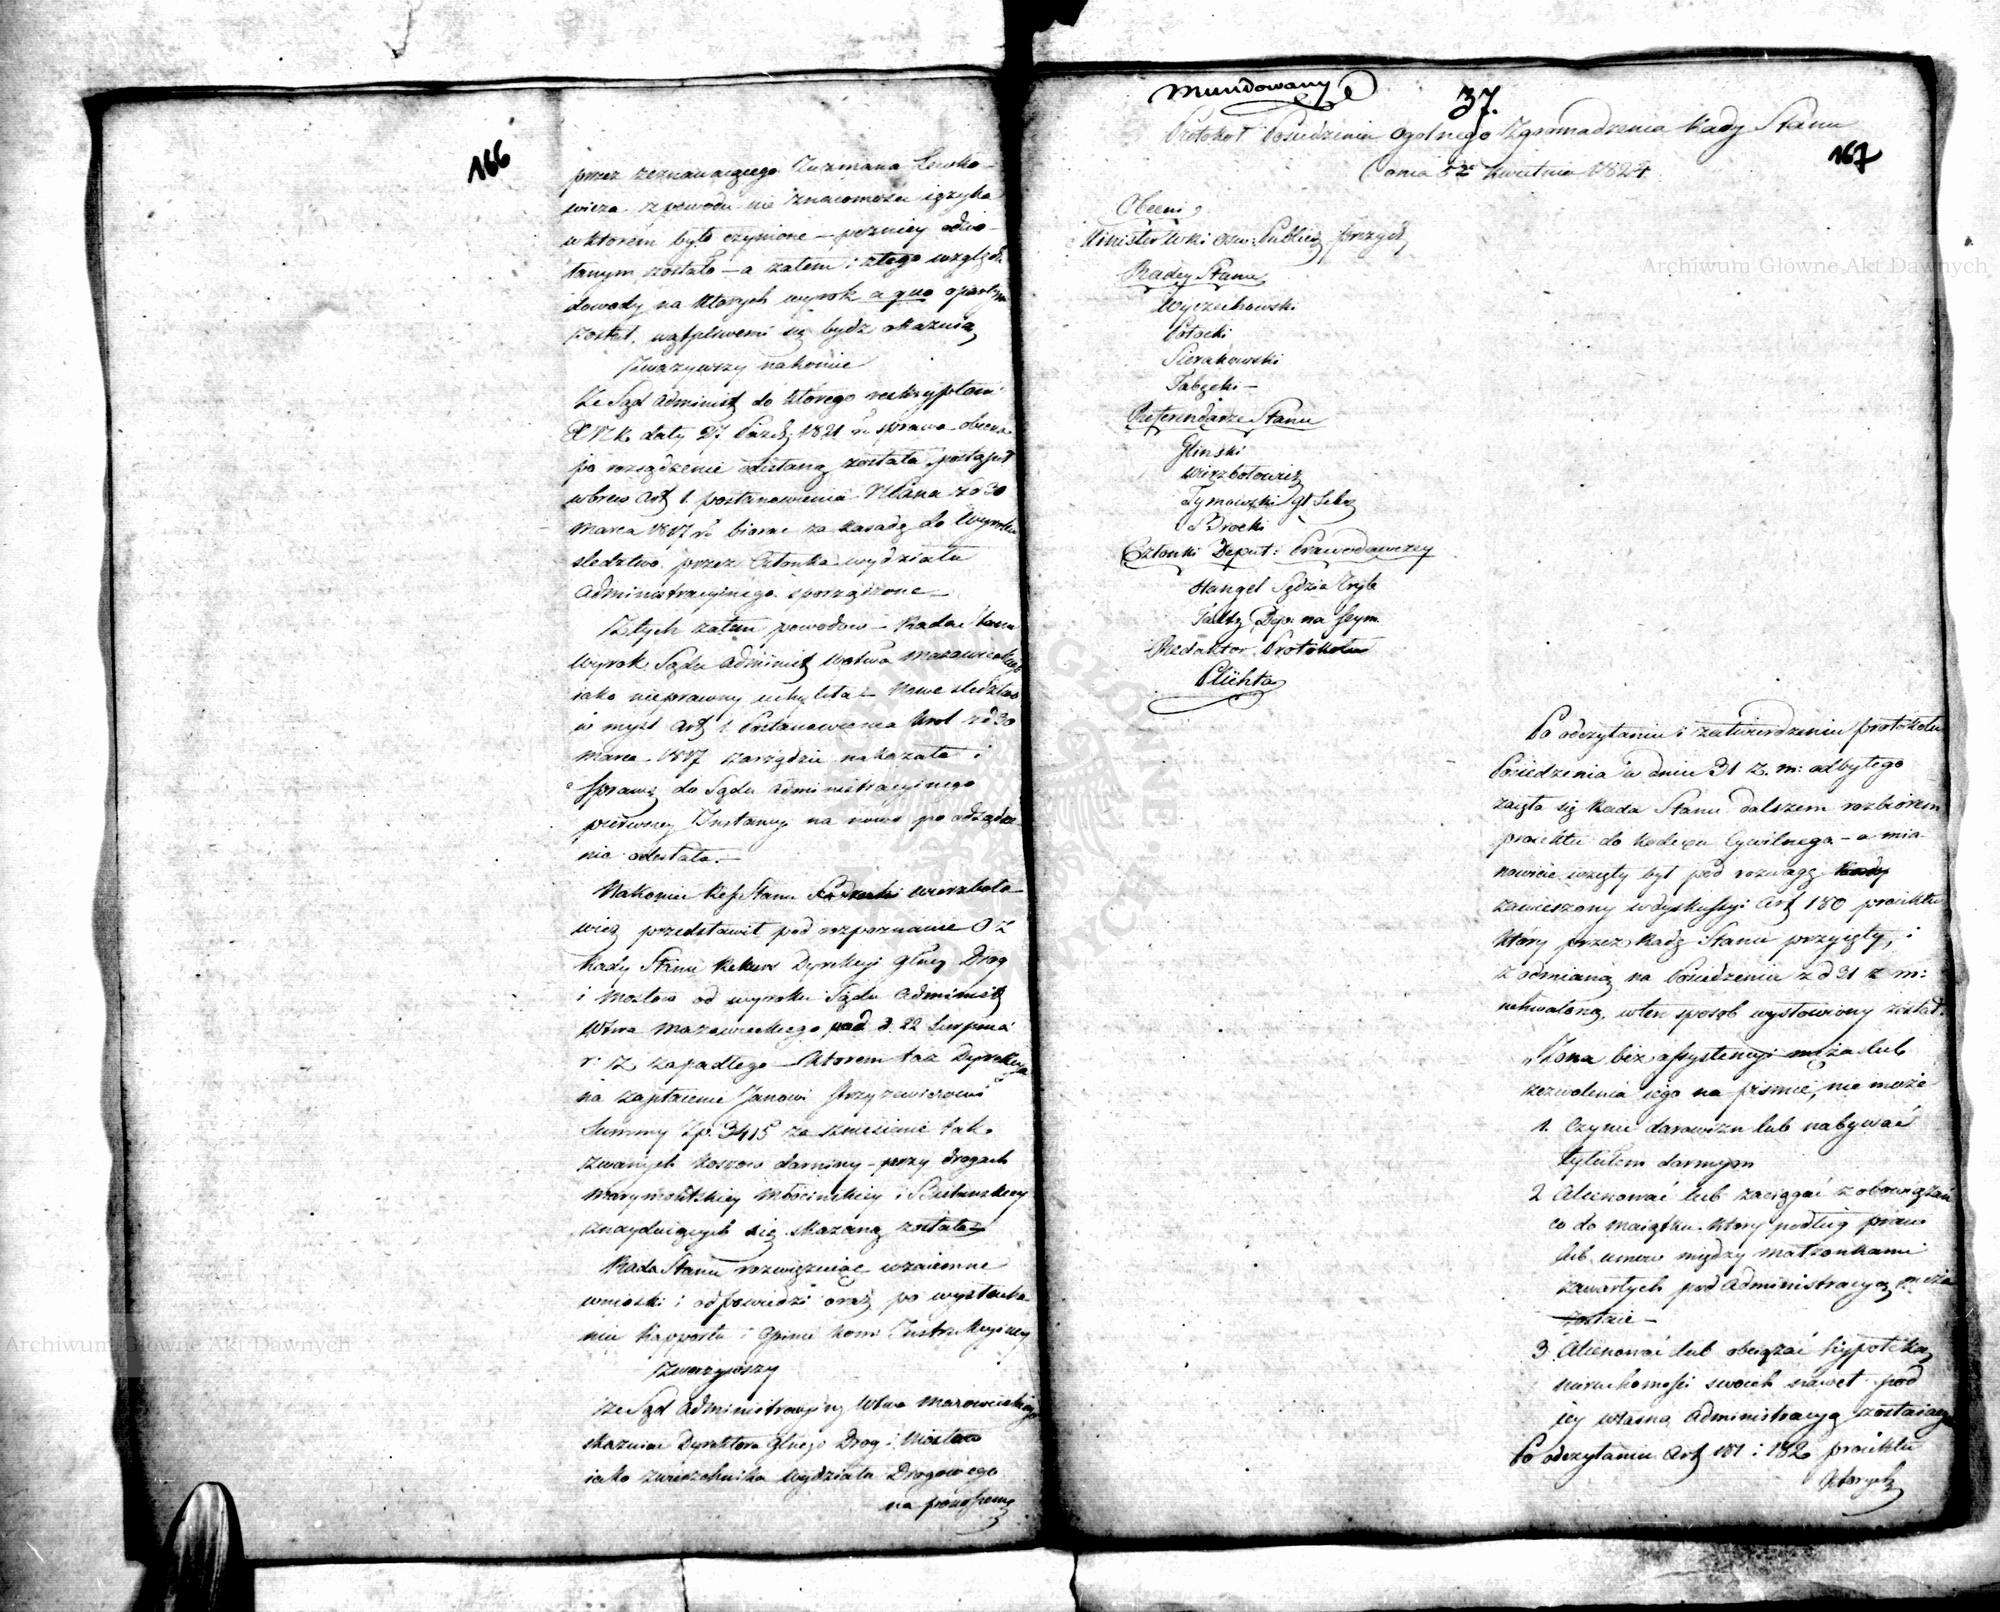 166
przez zeznawaiącego Zuzmana Lewko-
wicza z powodu nie znaiomości ięzyka
w ktorém było czynione – pozniey odwo-
łanym zostało – a zatém i z tego względu
dowody na ktorych wyrok a quo opartym
został, wątpliwemi się bydz okazuią
Zważywszy nakoniec
że Sąd Administ do którego reskryptem
daty 27 Paźdz: 1821 r. sprawa obecna
po rozsądzenie odesłaną została postąpił
wbrew Art 1. postanowienia z d 30
Marca 1817 r. biorąc za zasadę do Wyroku
sledztwo przez Członka wydziału
Administracyinego sporządzone –
Z tych zatem powodow – Rada Stanu
Wyrok Sądu Administ Wodztwa Mazowieckiego
iako nieprawny uchyliła – Nowe sledztwo
w myśl Art 1. Postanowienia Król z d 30
Marca 1817 zarządzić nakazała i
sprawę do Sądu Administracyinego
pierwszey Instancyi na nowo po odsądze-
nie odesłała. –
Nakoniec Ref Stanu Wierzboło-
wicz przedstawił pod rozpoznanie O Z
Rady Stanu Rekurs Dyrekcyi Głney Drog
i Mostow od wyroku Sądu Administ
Wtwa Mazowieckiego pod d. 22 Sierpnia
r: z. zapadłego – ktorem taż Dyrekcya
na zapłacenie Janowi
Summy Zp. 3415 za zniesienie tak
zwanych koszow darniny – przy drogach
Marymontskiey Młocinskiey i Bielanskiey
znayduiących się skazaną została –
Rada Stanu rozwiązuiąc wzaiemne
wnioski i odpowiedzi oraz po wysłucha-
niu Rapportu i Opinii Kom Instrukcyiney
Zważywszy
że Sąd Administracyiny Wtwa Mazowieckiego
skazuiąc Dyrektora Głnego Drog i Mostow
iako zwierzchnika Wydziału Drogowego
na
Mundowany
37.
167
Protokoł Posiedzenia Ogolnego Zgromadzenia Rady Stanu
Dnia Kwietnia 1824
Obecni,
Minister W Publicz
Radcy Stanu
Wyczechowski
Potocki
Sierakowski
Tabęcki –
Referendarze Stanu
Glinski
Wierzbołowicz
Tymowski
Brocki
Członki Deput: Prawodawczey
Hangel Sędzia
Dep: na Seym
Redaktor Protokołu
Plichta
Po odczytaniu i zatwierdzeniu protokołu
Posiedzenia w dniu 31 z. m: odbytego
zaięła się Rada Stanu dalszem rozbiorem
proiektu do Kodexu Cywilnego – a mia-
nowicie wzięty był pod rozwagę
zawieszony w dyskussyi Art 180 proiektu
który przez Radę Stanu przyięty, i
z odmianą na Posiedzeniu z d 31 z m:
uchwaloną, w ten sposob wysłowiony został.
„Żona bez assystencyi męża lub
zezwolenia iego na piśmie, nie może
1. Czynić darowizn lub nabywać
tytułem darmym
2 Alienować lub zaciągać zobowiązań
co do maiątku który podług praw
lub umow między małżonkami
zawartych pod administracyą męża
zostaie –
3. Alienować lub obciążać hypoteką
nieruchomości swoich nawet pod
jey własną administracyą zostaiących
Po odczytaniu Art 181 i 182 proiektu
których
Archiwum Główne Akt Dawnych
Archiwum Główne Akt Dawnych